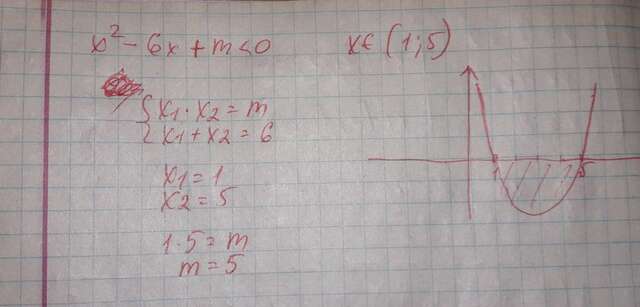 x² - 6x + m < 0
x ∈ (1; 5)
{ x1 · x2 = m
{ x1 + x2 = 6
x1 = 1
x2 = 5
1 · 5 = m
m = 5
1
5